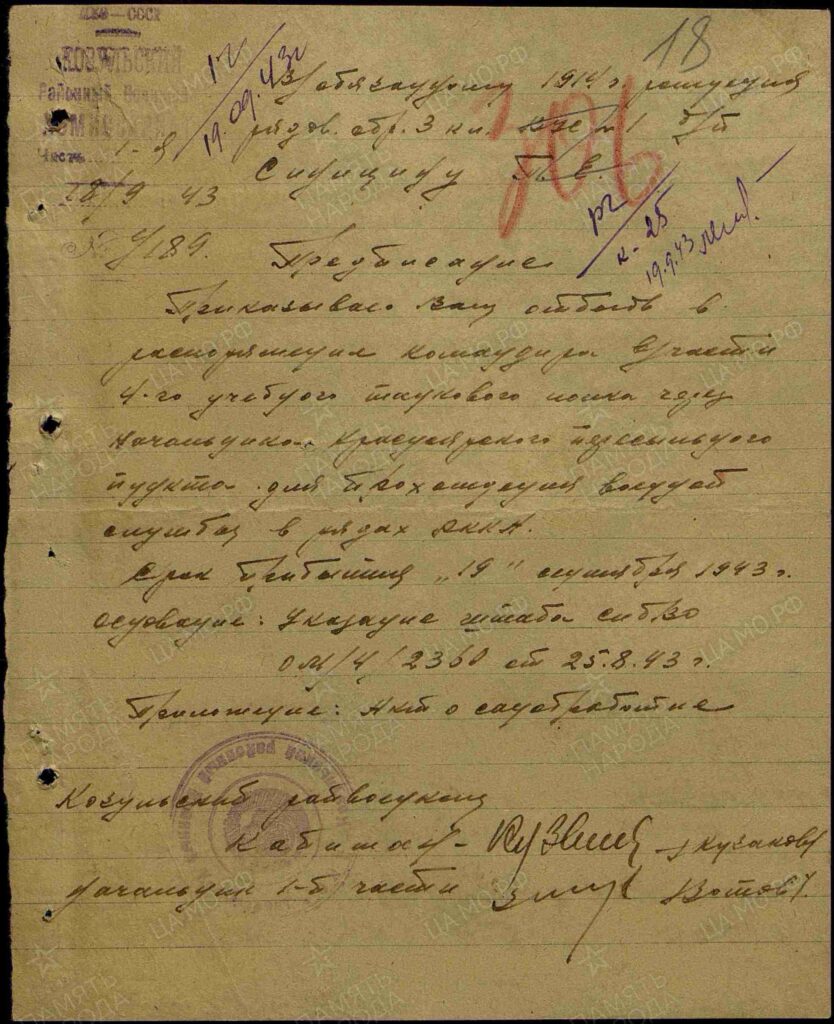 НКО — СССР
КОЗУЛЬСКИЙ
Районный Военный
КОМИССАРИАТ
Часть 1-я
18/9 43
№ 4/189.
19.09.43г
18
в/обязанному 1914 г. рождения
рядов. обр. 3 кл. б/п
Синицину П. Е.
306
к-25
19.9.43
Предписание
Приказываю Вам отбыть в
распоряжение командира в/части
4-го учебного танкового полка через
начальника Красноярского пересыльного
пункта для прохождения военной
службы в рядах РККА.
Срок прибытия „19" сентября 1943 г.
Основание: Указание штаба СибВО
ОМ/4/2360 от 25.8.43 г.
Приложение: Акт о санобработке
Козульский райвоенком
Капитан - /Кузаков/
Начальник 1-й части /Зотов/.